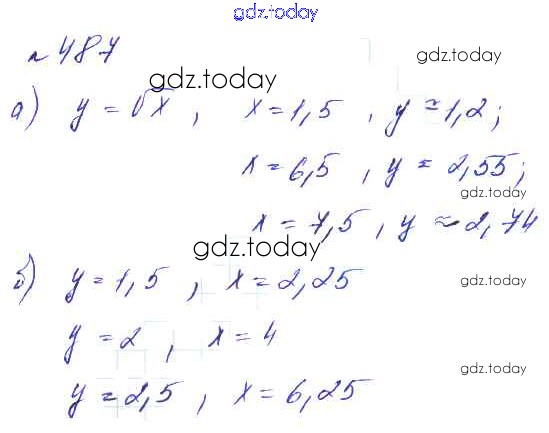 gdz.today
№ 487
gdz.today
gdz.today
а) y = √x , x = 1,5 , y ≈ 1,2;
x = 6,5 , y ≈ 2,55;
gdz.today
x = 7,5 , y ≈ 2,74
gdz.today
б) y = 1,5 , x = 2,25
gdz.today
y = 2 , x = 4
gdz.today
y = 2,5 , x = 6,25